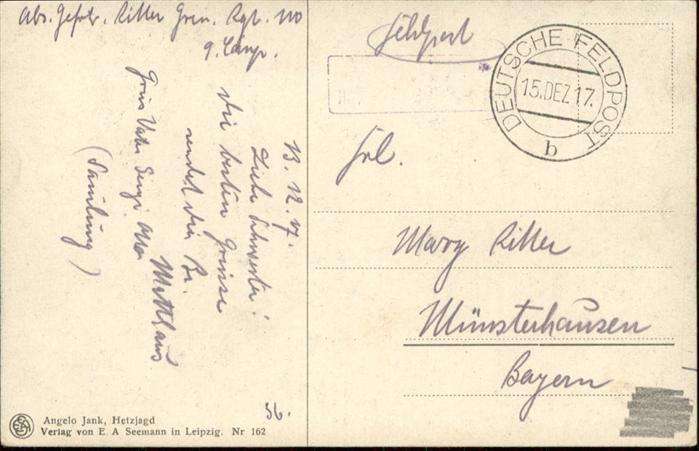 Abs. Gefr. Ritter Gren. Rgt. 110
9. Comp.
Feldpost
DEUTSCHE FELDPOST
15.DEZ.17.
b
13. 12. 17.
Liebe Schwester!
die besten Grüsse
sendet dir Br.
Matthäus
Frl.
Mary Ritter
Münsterhausen
Bayern
36.
Angelo Jank, Hetzjagd
Verlag von E. A Seemann in Leipzig. Nr 162